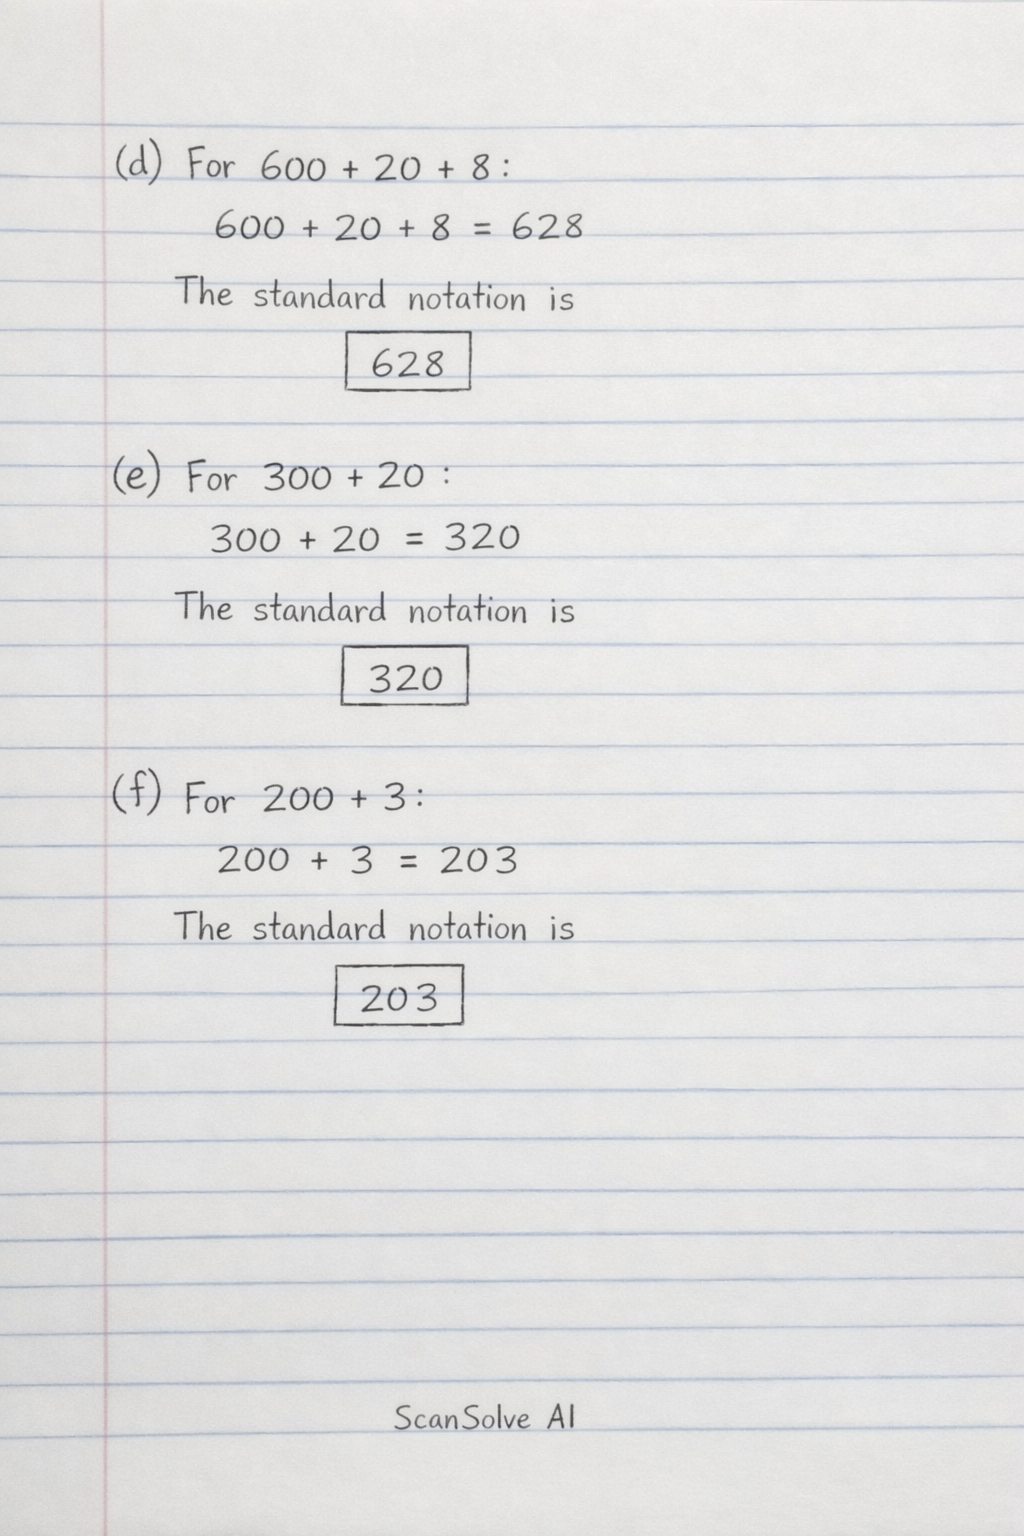 (d) For 600 + 20 + 8:
600 + 20 + 8 = 628
The standard notation is
628
(e) For 300 + 20 :
300 + 20 = 320
The standard notation is
320
(f) For 200 + 3:
200 + 3 = 203
The standard notation is
203
ScanSolve AI